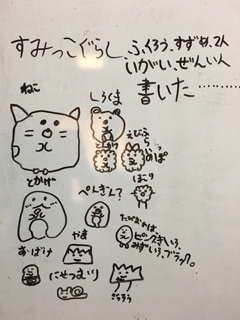 すみっコぐらし、ふくろう、すずめ、2人
いがい、ぜんいん
書いた………
ねこ
しろくま
とかげ
えびふらい
ほこり
ぺんぎん?
たぴおかは、
ピンクきいろ、
みずいろ、ブラック。
おばけ
やま
にせつむり
ざっそう